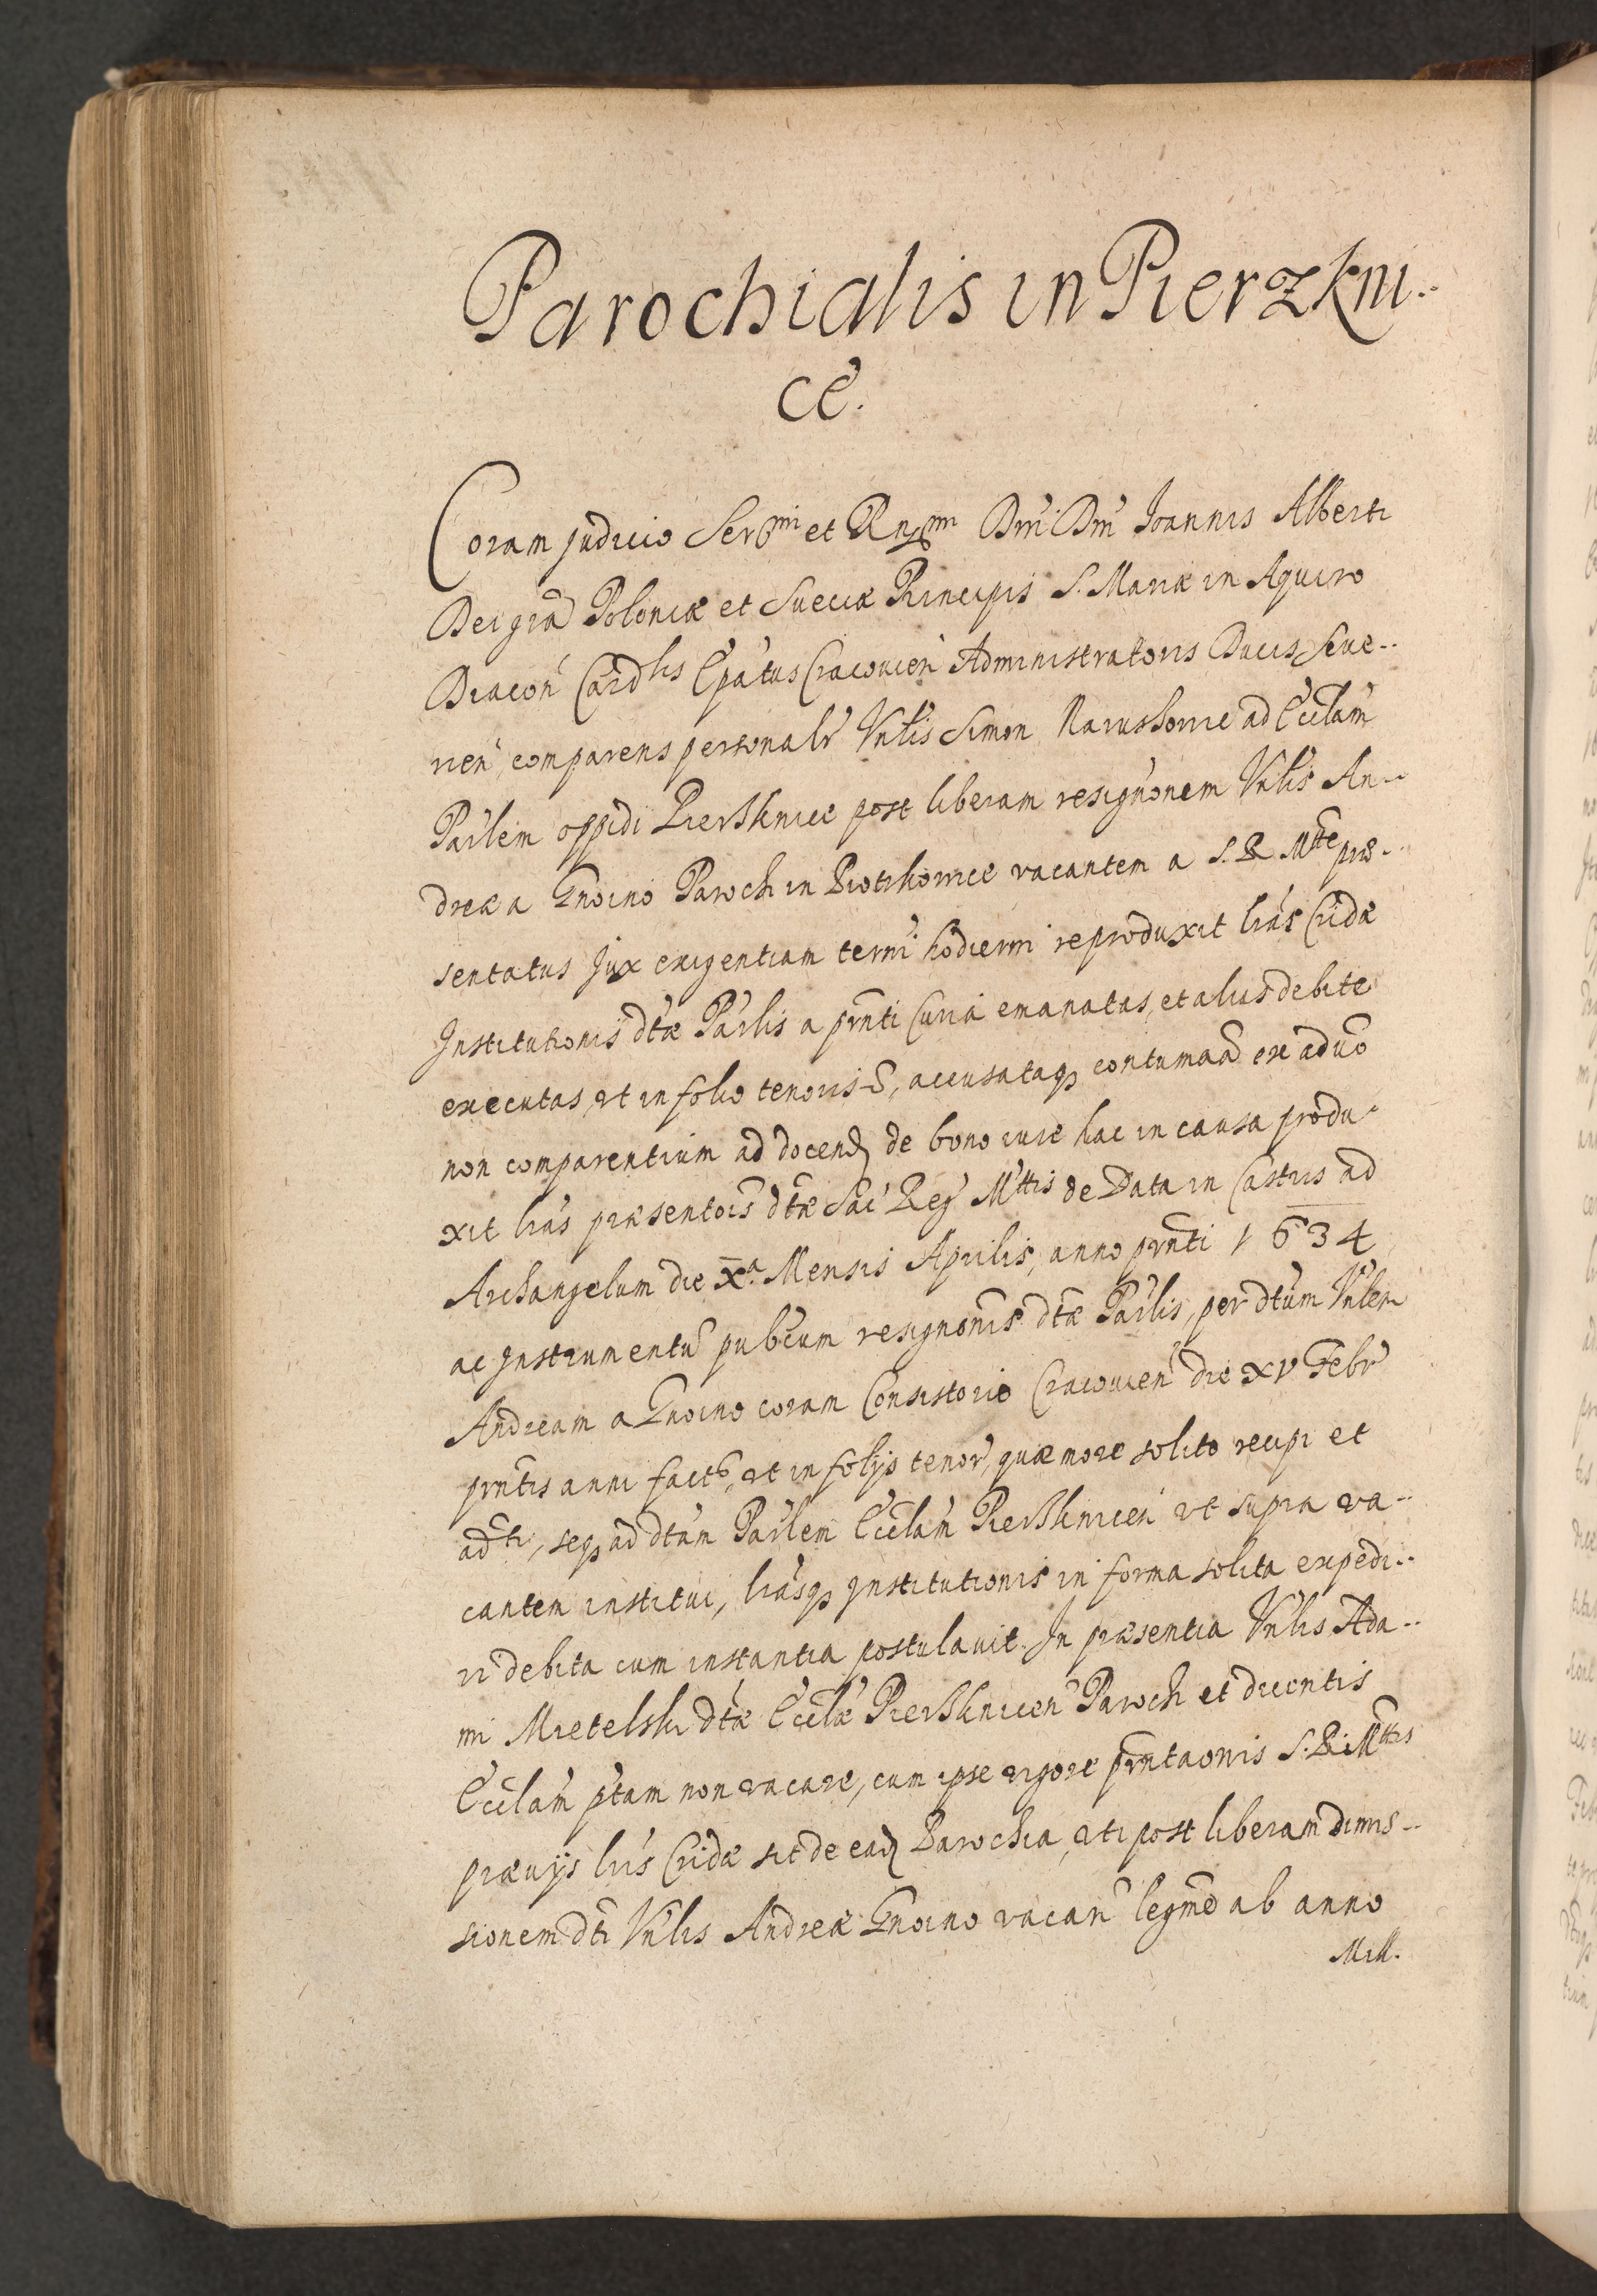 Parochialis in Pierzkni..
ce.
Coram judicio Sermi et Rndssmi Dni Dni Joannis Alberti
Dei gra Poloniæ et Sueciæ Principis S. Mariæ in Aquiro
Diacon Cardlis Epatus Cracovien Administratoris Ducis Seve..
rien comparens personalr Vnlis Simon ad Ecclam
Parlem oppidi Pierzknice post liberam resignonem Vnlis An..
dreæ a Gnoino Paroch in Piotrkowice vacantem a S. R. Mtte præ..
sentatus Jux exigentiam termi hodierni reproduxit lras Cridæ
Institutionis dtæ Parlis a prnti Curia emanatas, et alias debite
executas, vt in folio tenoris e, accusataqz contumaa ex aduo
non comparentium ad docend de bono iure hac in causa produ
xit lras præsentois dtæ Sac Reg Mttis de Data in Castris ad
Archangelum die Xa Mensis Aprilis, anno prnti 1634
ac Instrumentu pubcum resignonis dtæ Parlis, per dtum Vnlem
Andream a Gnoino coram Consistorio Cracovien die XV Febr
prntis anni facto, vt in folijs tenor, quæ more solito recipi et
adti, seqz ad dtam Parlem Ecclam Pierzknicen vt supra va..
cantem institui, lrasqz Institutionis in forma solita expedi..
ri debita cum instantia postulauit. In præsentia Vnlis Ada..
mi Mietelski dtæ Ecclæ Pierzknicen Paroch et dicentis
Ecclam ptam non vacare, cum ipse vigore prntaonis S. R. Mttis
præuijs lris Cridæ sit de ead Parochia, vti post liberam dimis..
sionem dti Vnlis Andreæ Gnoino vacan legme ab anno
Mill.